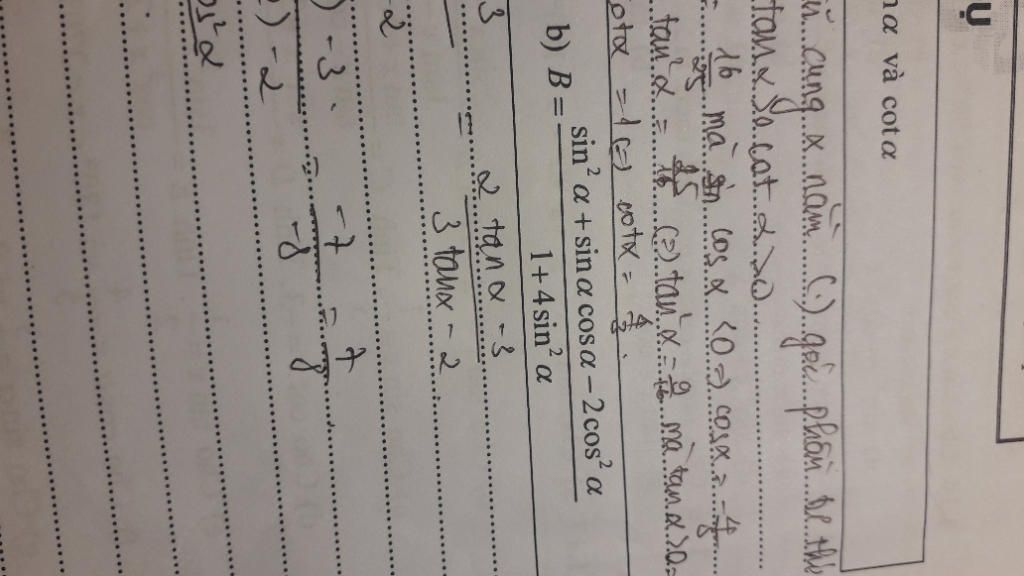 Ụ
α và cotα
cung α nằm (.) góc phần
tanα cot α > 0
= 16/25 mà cos α < 0 => cosα = -4/5
tan²α = 25/16 (=) tan²α = 9/16 mà tanα > 0 =
cotα = 1 (=) cotα = 4/3.
b) B = (sin²α + sinα cosα − 2cos²α)/(1 + 4sin²α)
3 = (2 tanα − 3)/(3 tanα − 2)
-2
) -3 = -7/-8 = 7/8
) -2
os²α